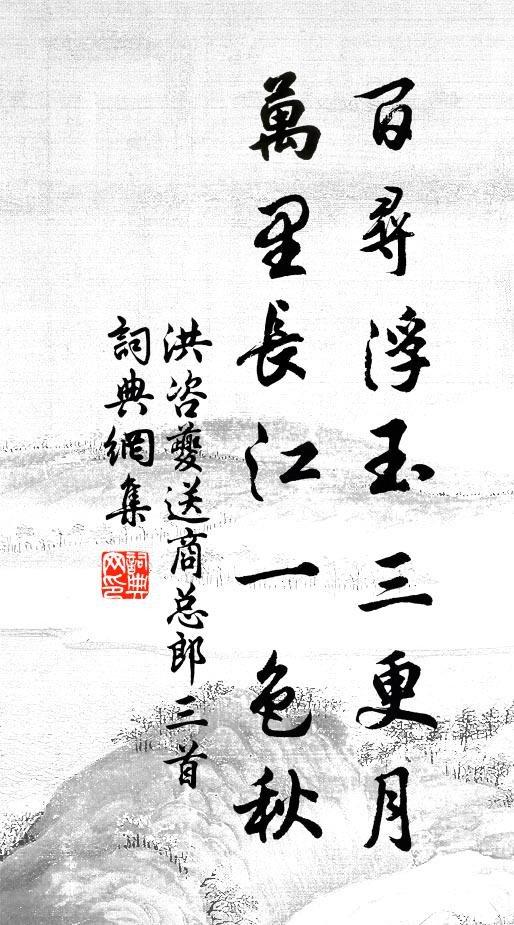 百尋浮玉三更月
萬里長江一色秋
洪咨夔送商总郎三首
詞典網集
詞典网印